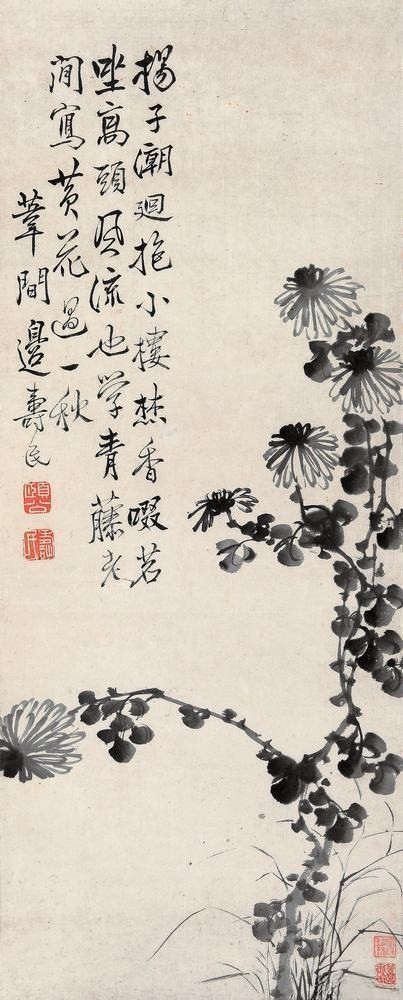 揚子潮廻抱小樓焚香啜茗
坐高頭風流也學青藤老
閒寫黃花過一秋
葦間邊壽民
頤公
壽民